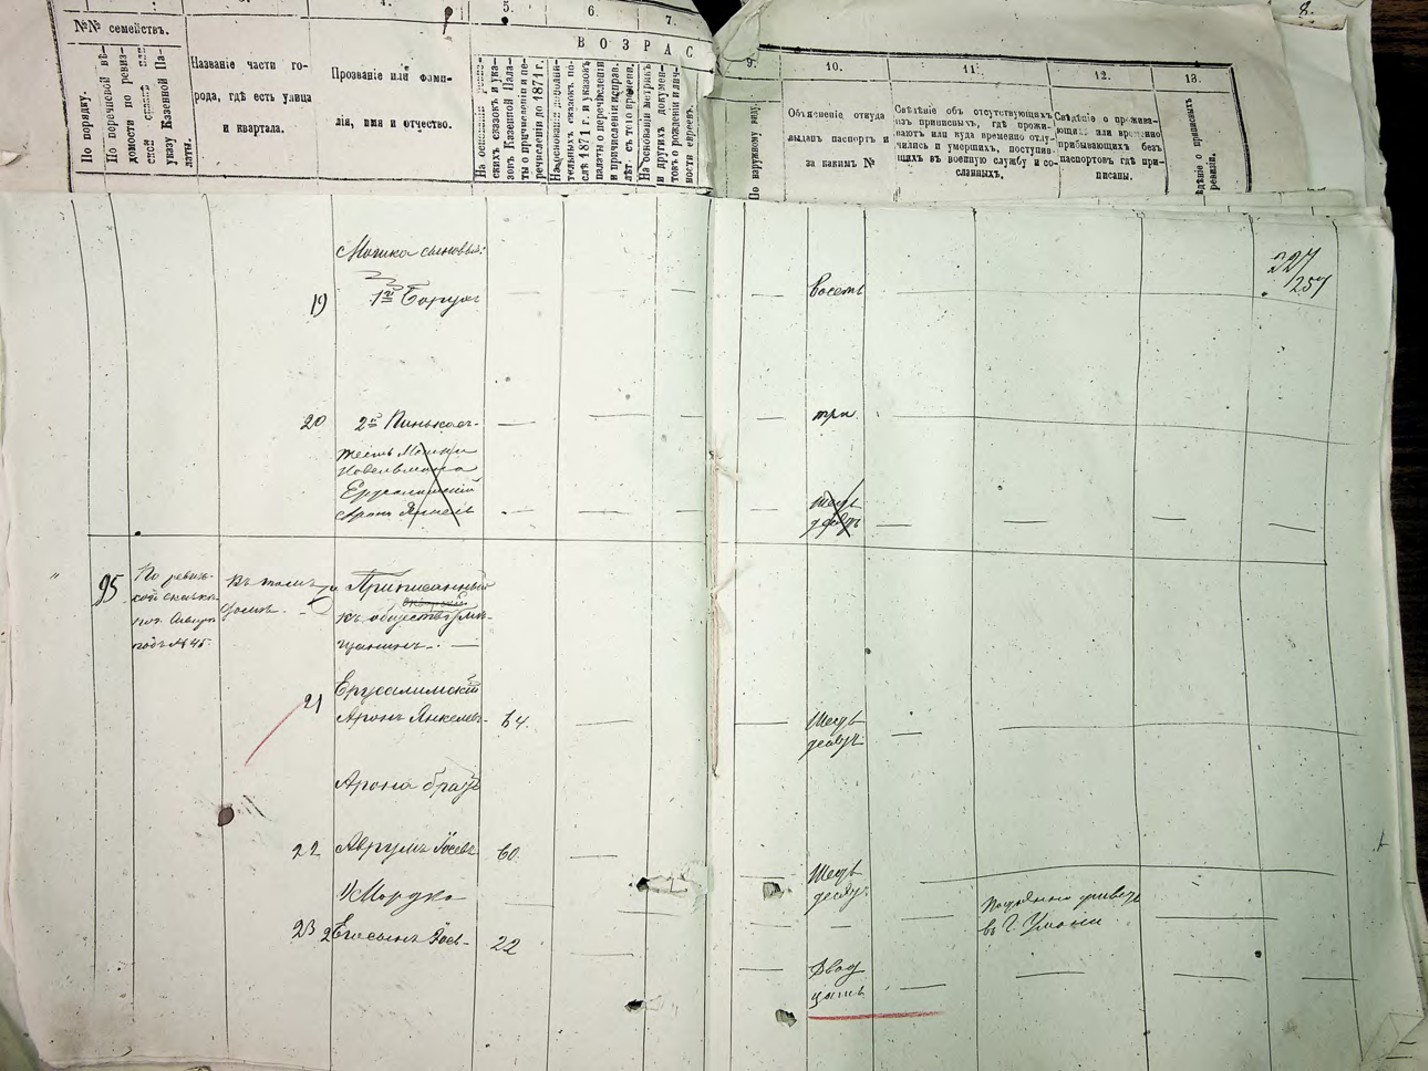 4.
5.
6.
7.
8.
№№ семействъ.
По порядку.
По перечневой вѣ-
домости по ревиз-
ской сказкѣ или
указу Казенной Па-
латы.
Названіе части го-
рода, гдѣ есть улица
и квартала.
Прозваніе или фами-
лія, имя и отчество.
ВОЗРАС
На основаніи ревиз-
скихъ сказокъ и ука-
зовъ Казенной Пала-
ты о причисленіи и пе-
речисленіи до 1871 г.
На основаніи дополни-
тельныхъ сказокъ по-
слѣ 1871 г. и указовъ
палаты о перечисленіи
и причисленіи исправ.
лѣт. съ того времени.
На основаніи метрикъ
и другихъ докумен-
товъ о рожденіи и лич-
ности евреевъ.
9.
10.
11.
12.
13.
По наружному виду.
Объясненіе откуда
выданъ паспортъ и
за какимъ №
Свѣдѣніе объ отсутствующихъ
изъ приписныхъ, гдѣ прожи-
ваютъ или куда временно отлу-
чились и умершихъ, поступив-
шихъ въ военную службу и со-
сланныхъ.
Свѣдѣніе о прожива-
ющихъ или временно
прибывающихъ безъ
паспортовъ гдѣ при-
писаны.
ѣдѣніе о приписныхъ
ревизіи.
Мошка сыновья:
227/257
19 1й Борухъ — — — — восемь —
20 2й Пинькасъ — — — — три —
Ерусалимскій
Аронъ Янкель — — — — Шесть
десятъ — — — —
95 По ревиз-
ской сказкѣ
№ 45
Къ томъ
домѣ
Приписанный
къ обществу мѣ-
щанинъ —
21 Ерусалимскій
Аронъ Янкелев- 64. — — Шесть
десятъ — —
Арона братъ
22 Аврумъ Іосевъ 60 — — Шесть
десят. —
1/ Мордко — — — — Постоянно живетъ
въ г. Умани —
23 2 Іосев- 22 — Двад
цать — — — —